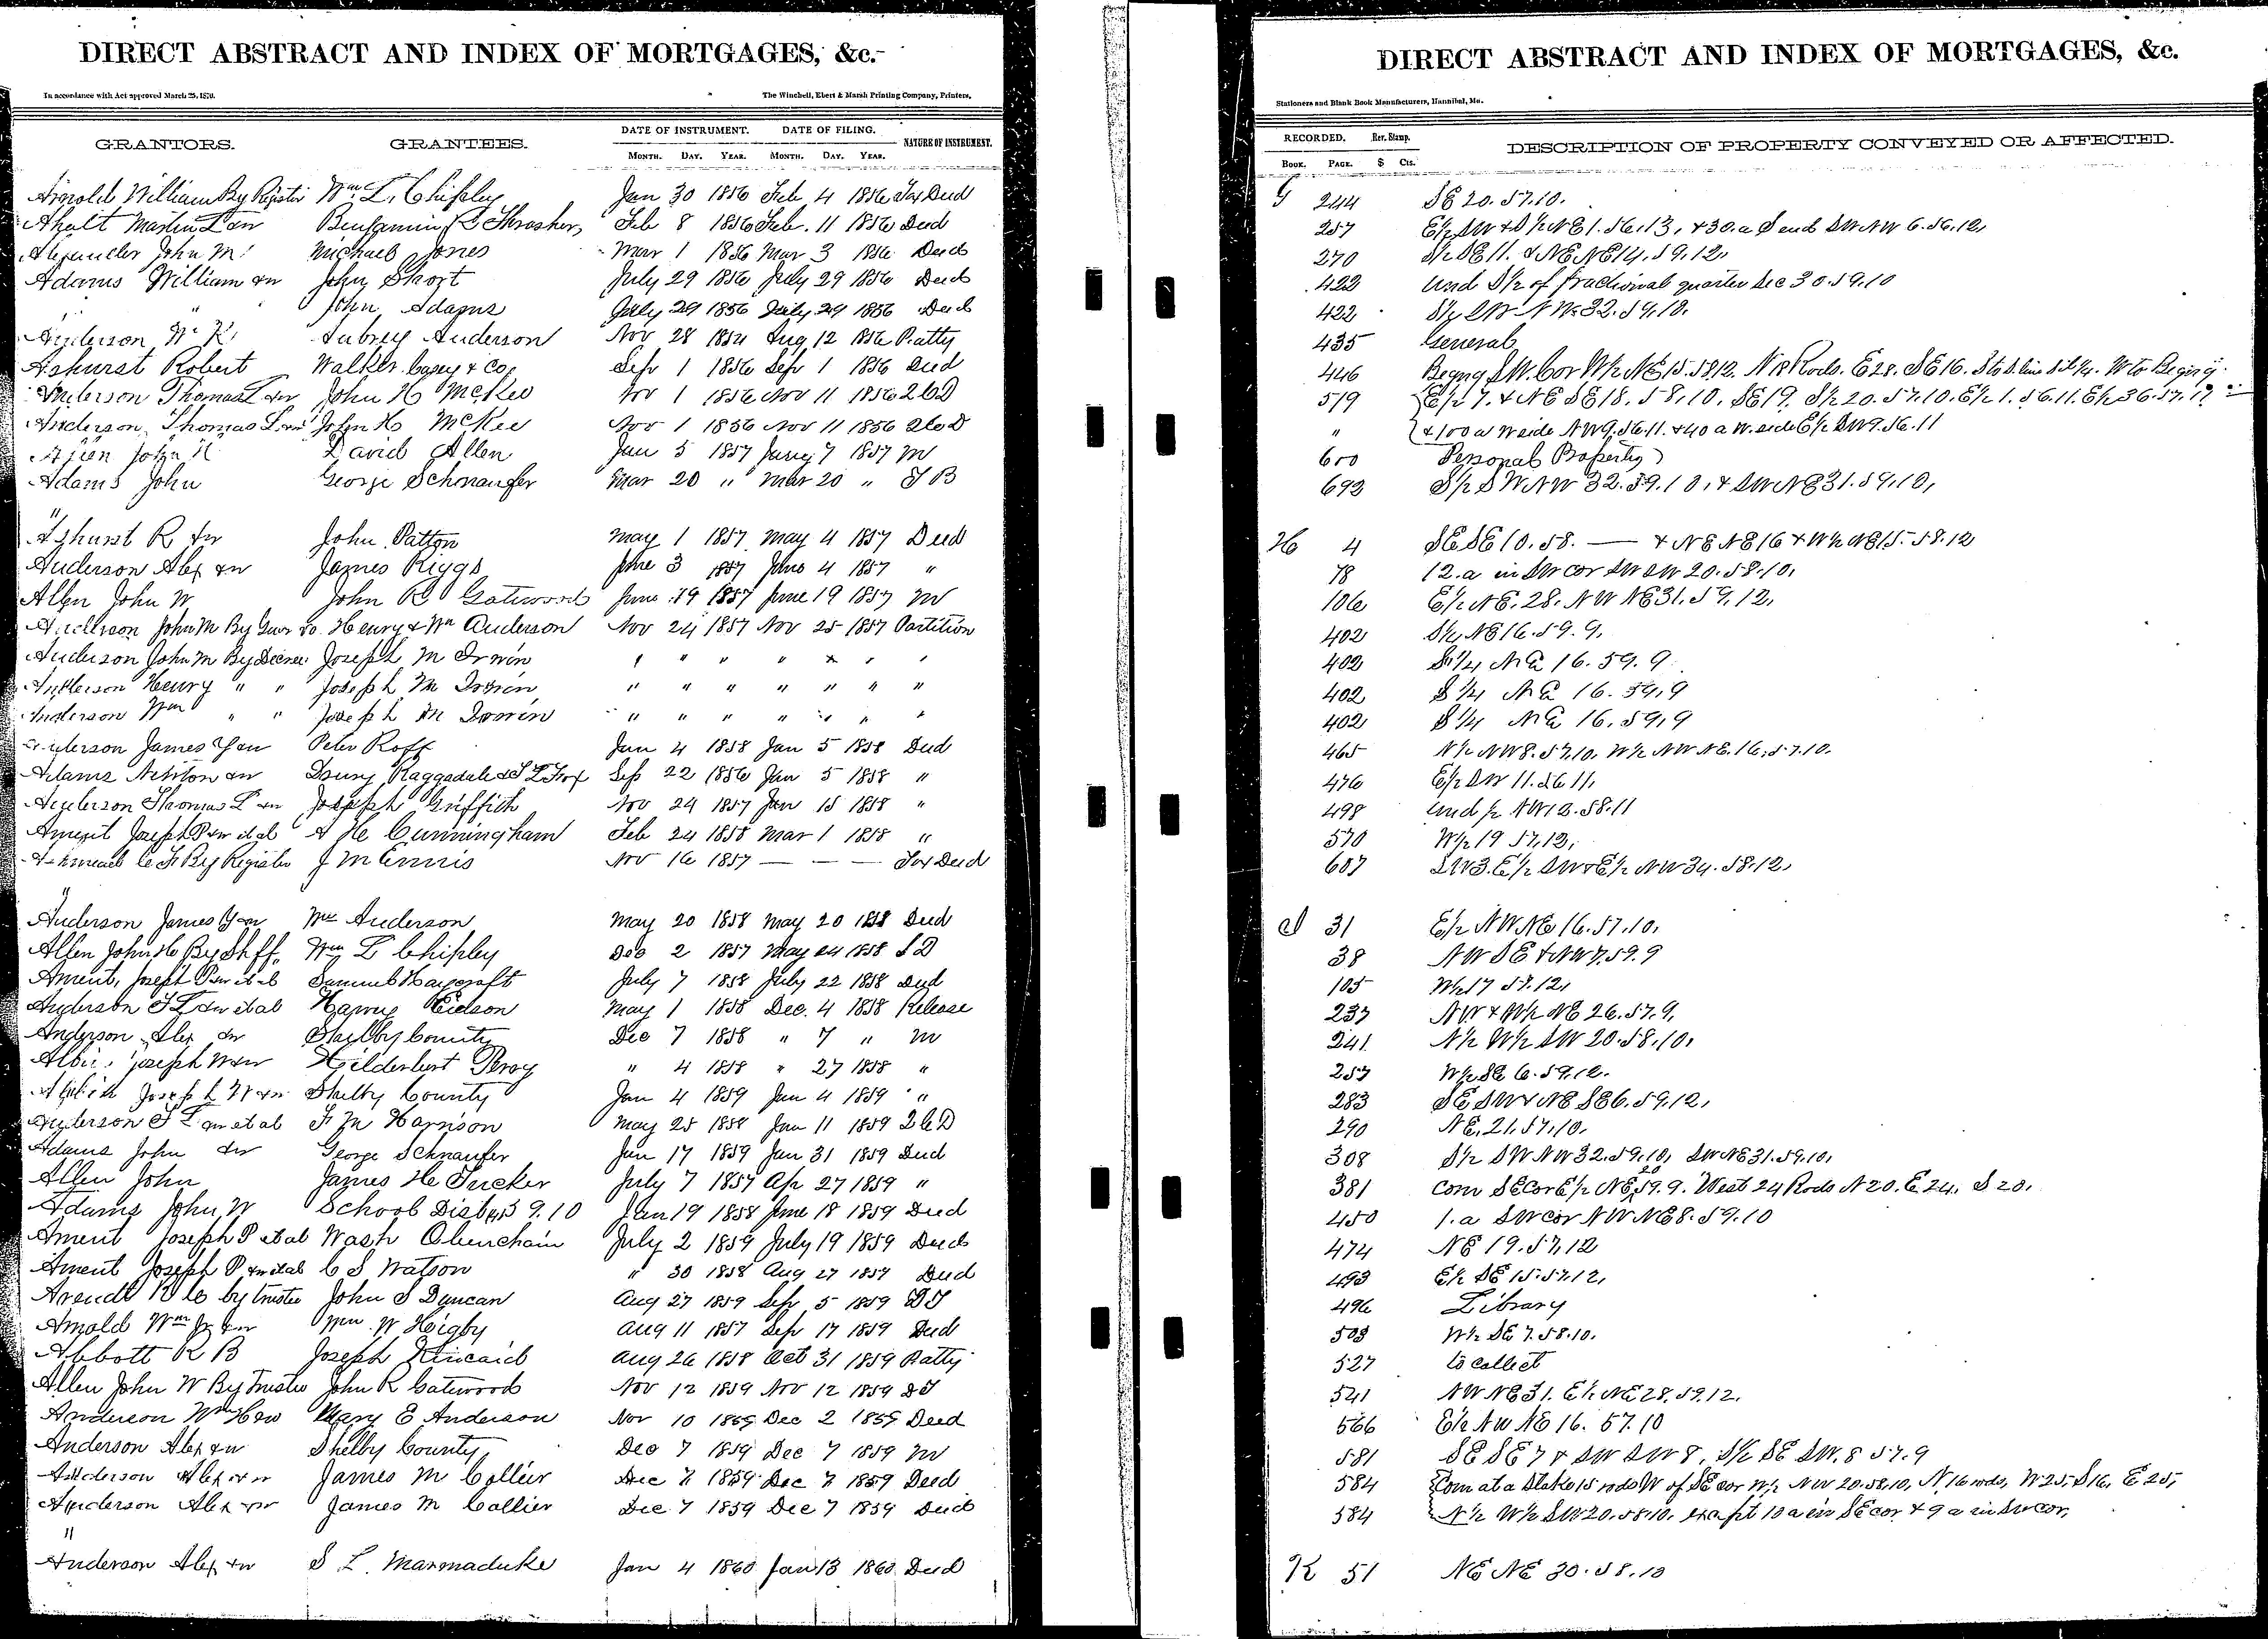 DIRECT ABSTRACT AND INDEX OF MORTGAGES, &c.
In accordance with Act approved March 25, 1870.
The Winchell, Ebert & Marsh Printing Company, Printers,
GRANTORS. GRANTEES. DATE OF INSTRUMENT. DATE OF FILING. NATURE OF INSTRUMENT.
MONTH. DAY. YEAR. MONTH. DAY. YEAR.
Arnold William By Register Wm L. Chipley Jan 30 1856 Feb 4 1856 Tax Deed
Ahalt Martin L &w Benjamin R Thrasher Feb 8 1856 Feb. 11 1856 Deed
Alexander John M. Michael Jones Mar 1 1856 Mar 3 1856 Deed
Adams William &w John Short July 29 1856 July 29 1856 Deed
" John Adams July 29 1856 July 29 1856 Deed
Anderson Aubrey Anderson Nov 28 1854 Aug 12 1856 P atty
Ashurst Robert Walker Casey & Co. Sep 1 1856 Sep 1 1856 Deed
Anderson Thomas L &w John H McKee Nov 1 1856 Nov 11 1856 2 C D
Anderson, Thomas L &w John H McKee Nov 1 1856 Nov 11 1856 2 C D
Allen John David Allen Jan 5 1857 7 1857 M
Adams John George Schonaufer Mar 20 " Mar 20 " T B
"
Ashurst R &w John Patton May 1 1857 May 4 1857 Deed
Anderson Alex &w James Riggs June 3 1857 June 4 1857 "
Allen John W John R Gatewood June 19 1857 June 19 1857 M
Anderson John M By Henry & Wm Anderson Nov 24 1857 Nov 25 1857 Partition
Anderson John M By Decree Joseph M Irwin " " " " " " "
Anderson Henry " " Joseph M Irwin " " " " " " "
Anderson Wm " " Joseph M Irwin " " " " " " "
Anderson James Y &w Peter Roff Jan 4 1858 Jan 5 1858 Deed
Adams &w Drury Raggsdale & S L Fox Sep 22 1856 Jan 5 1858 "
Anderson Thomas L &w Joseph Griffith Nov 24 1857 Jan 15 1858 "
Ament Joseph P &w et al A H Cunningham Feb 24 1858 Mar 1 1858 "
Ashmead C F By Register J M Ennis Nov 16 1857 — — — Tax Deed
"
Anderson James Y &w Wm Anderson May 20 1858 May 20 1858 Deed
Allen John H By Shff. Wm L Chipley Dec 2 1857 May 24 1858 S D
Ament, Joseph P &w et al Samuel Haycraft July 7 1858 July 22 1858 Deed
Anderson T L &w et al Harvey Eidson May 1 1858 Dec. 4 1858 Release
Anderson Alex &w Shelby County Dec 7 1858 " 7 " M
Joseph W &w Hilderbert Peroy " 4 1858 " 27 1858 "
Joseph W &w Shelby County Jan 4 1859 Jan 4 1859 "
Anderson T L &w et al F M Harrison May 25 1858 Jan 11 1859 2 C D
Adams John &w George Schnaufer Jan 17 1859 Jan 31 1859 Deed
Allen John James H Tucker July 7 1857 Ap 27 1859 "
Adams John W School Dist 9.10 Jan 19 1858 June 18 1859 Deed
Ament Joseph P et al Wash Obenchain July 2 1859 July 19 1859 Deed
Ament Joseph P &w et al C S Watson " 30 1858 Aug 27 1859 Deed
Arendt R C by trustee John S Duncan Aug 27 1859 Sep 5 1859 D T
Arnold Wm Jr &w Wm W Higby Aug 11 1857 Sep 17 1859 Deed
Abbott R B Joseph Kincaid Aug 26 1858 Oct 31 1859 P atty
Allen John W By Trustee John R Gatewood Nov 12 1859 Nov 12 1859 D T
Anderson Wm H &w Mary E Anderson Nov 10 1859 Dec 2 1859 Deed
Anderson Alex &w Shelby County Dec 7 1859 Dec 7 1859 M
Anderson Alex &w James M Collier Dec 7 1859 Dec 7 1859 Deed
Anderson Alex &w James M Collier Dec 7 1859 Dec 7 1859 Deed
"
Anderson Alex &w S L. Marmaduke Jan 4 1860 Jan 13 1860 Deed
DIRECT ABSTRACT AND INDEX OF MORTGAGES, &c.
Stationers and Blank Book Manufacturers, Hannibal, Mo.
RECORDED. Rev. Stamp. DESCRIPTION OF PROPERTY CONVEYED OR AFFECTED.
BOOK. PAGE. $ Cts.
G 244 SE 20. 57.10.
257 E½ SW & S½ NE 1. 56.13, & 30.a S end SW NW 6.56.12,
270 S½ SE 11. & NE NE 14. 59.12.
422 Und S½ of fractional quarter Sec 30.59.10
422 S½ SW NW 32. 59.10.
435 General
446 Begng SW. Cor W½ NE 15.58.12. N 18 Rods. E 28. SE 16. S to S. line W to Beging
519 E½ 7. & NE SE 18. 58.10. SE 19. S½ 20. 57.10. E½ 1. 56.11. E½ 36.57.
" & 100 a W side NW 9.56.11. & 40 a W. side E½ SW 9.56.11
600 Personal Property
693 S½ SW NW 32.59.10, & SW NE 31.59.10,
H 4 SE SE 10.58. — & NE NE 16 & W½ NE 15.58.12
78 12.a in SW cor SW SW 20.58.10.
106 E½ NE. 28. NW NE 31. 59.12.
402 S½ NE 16.59.9.
402 S¼ NE 16.59.9
402 S¼ NE 16.59.9
402 S¼ NE 16.59.9
465 N½ NW 8.57.10. W½ NW NE. 16.57.10.
476 E½ SW 11.56 11.
498 Und ½ NW 12.58.11
570 W½ 19 57.12.
607 SW 3. E½ SW & E½ NW 34.58.12.
I 31 E½ NW NE 16.57.10.
38 NW SE & NW 7.59.9
105 W½ 17 57.12,
237 NW & W½ NE 26.57.9.
241 N½ W½ SW 20.58.10.
257 W½ SE 6.59.12.
283 SE SW & NE SE 6.59.12,
290 NE. 21.57.10.
308 S½ SW NW 32.59.10, SW NE 31.59.10,
381 Com SE Cor E½ NE 20 59.9. West 24 Rods N 20. E 24. S 20.
450 1.a SW cor NW NE 8.59.10
474 NE 19.57.12
493 E½ SE 15.57.12,
496 Library
503 W½ SE 7.58.10.
527 to collect
541 NW NE 31. E½ NE 28.59.12.
566 E½ NW NE 16. 57.10
581 SE SE 7 & SW SW 8, S½ SE SW. 8 57.9
584 Com at a Stake 15 rods W of SE cor W½ NW 20.58.10, N 16 rods, W 25, S 16, E 25,
584 N½ W½ SW 20.58.10. except 10 a in SE cor & 9 a in SW cor,
K 51 NE NE 30.58.10